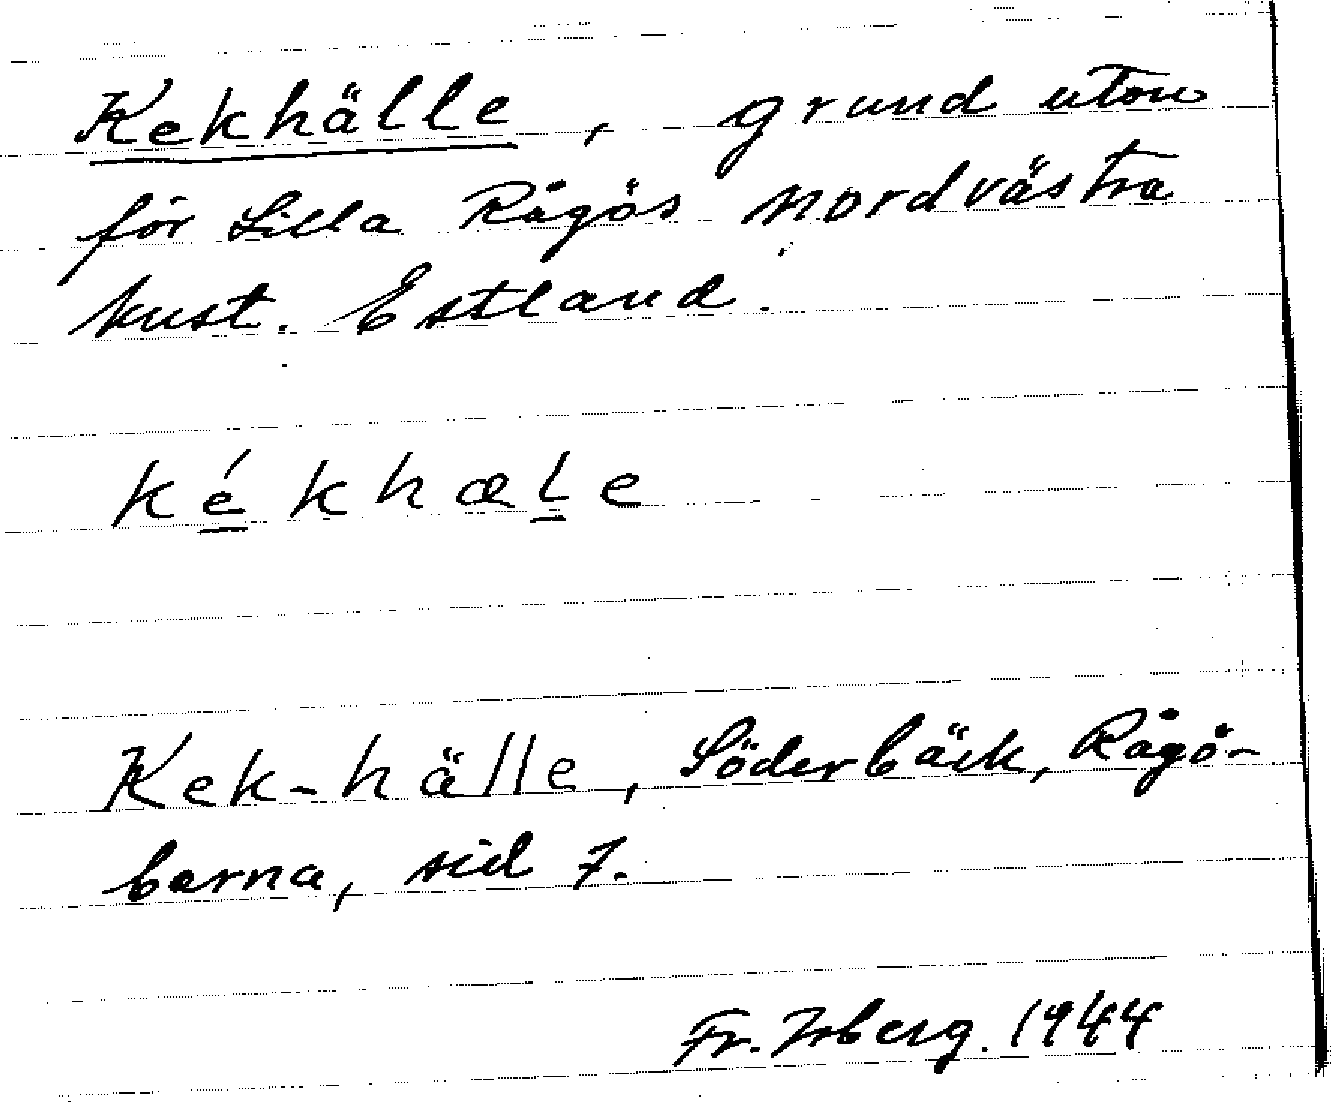 Kekhälle, grund utan
för Lilla Rågös nordvästra
kust. Estland.
kékhæle
Kek-hälle, Söderbäck, Rågö-
barna, sid 7.
Fr. Irberg. 1944